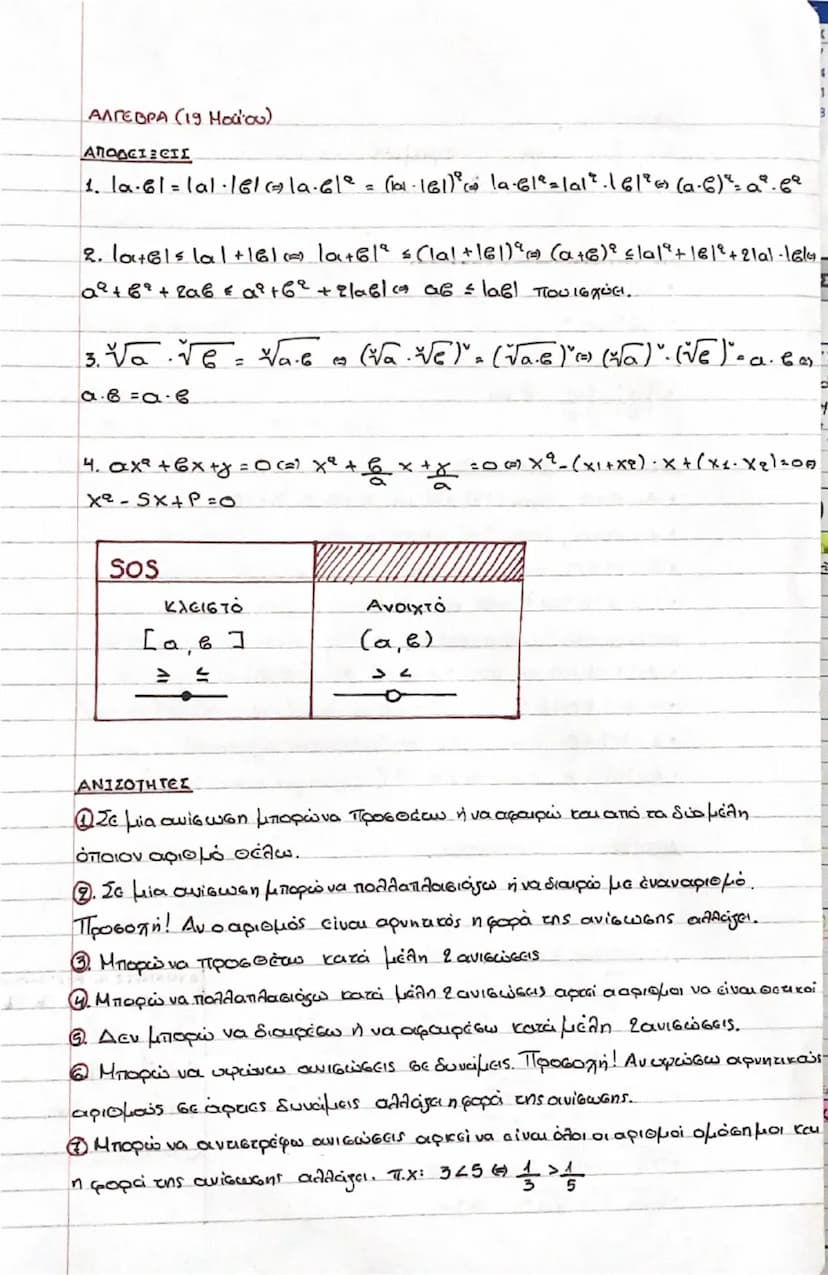 ΑΛΓΕΒΡΑ (19 Μαΐου)
ΑΠΟΔΕΙΞΕΙΣ
1. |α·β| = |α|·|β| ⇔ |α·β|² = (|α|·|β|)² ⇔ |α·β|² = |α|²·|β|² ⇔ (α·β)² = α²·β²
2. |α+β| ≤ |α| + |β| ⇔ |α+β|² ≤ (|α| + |β|)² ⇔ (α+β)² ≤ |α|² + |β|² + 2|α|·|β| ⇔
α² + β² + 2αβ ≤ α² + β² + 2|αβ| ⇔ αβ ≤ |αβ| που ισχύει.
3. ᵛ√α · ᵛ√β = ᵛ√α·β ⇔ (ᵛ√α · ᵛ√β)ᵛ = (ᵛ√α·β)ᵛ ⇔ (ᵛ√α)ᵛ · (ᵛ√β)ᵛ = α·β ⇔
α·β = α·β
4. αx² + βx + γ = 0 ⇔ x² + β/α x + γ/α = 0 ⇔ x² - (x1+x2)·x + (x1·x2) = 0 ⇔
x² - Sx + P = 0
SOS
Κλειστό Ανοιχτό
[α, β] (α, β)
≥ ≤ > <
ΑΝΙΣΟΤΗΤΕΣ
① Σε μία ανίσωση μπορώ να προσθέσω ή να αφαιρώ και από τα δύο μέλη
όποιον αριθμό θέλω.
②. Σε μία ανίσωση μπορώ να πολλαπλασιάζω ή να διαιρώ με έναν αριθμό.
Προσοχή! Αν ο αριθμός είναι αρνητικός η φορά της ανίσωσης αλλάζει.
③. Μπορώ να προσθέτω κατά μέλη 2 ανισώσεις
④. Μπορώ να πολλαπλασιάζω κατά μέλη 2 ανισώσεις αρκεί α αριθμοι να είναι θετικοί
⑤. Δεν μπορώ να διαιρέσω ή να αφαιρέσω κατά μέλη 2 ανισώσεις.
⑥ Μπορώ να υψώνω ανισώσεις σε δυνάμεις. Προσοχή! Αν υψώσω αρνητικούς
αριθμούς σε άρτιες δυνάμεις αλλάζει η φορά της ανίσωσης.
⑦ Μπορώ να αντιστρέφω ανισώσεις αρκεί να είναι όλοι οι αριθμοί ομόσημοι και
η φορά της ανίσωσης αλλάζει. π.χ: 3<5 ⇔ 1/3 > 1/5